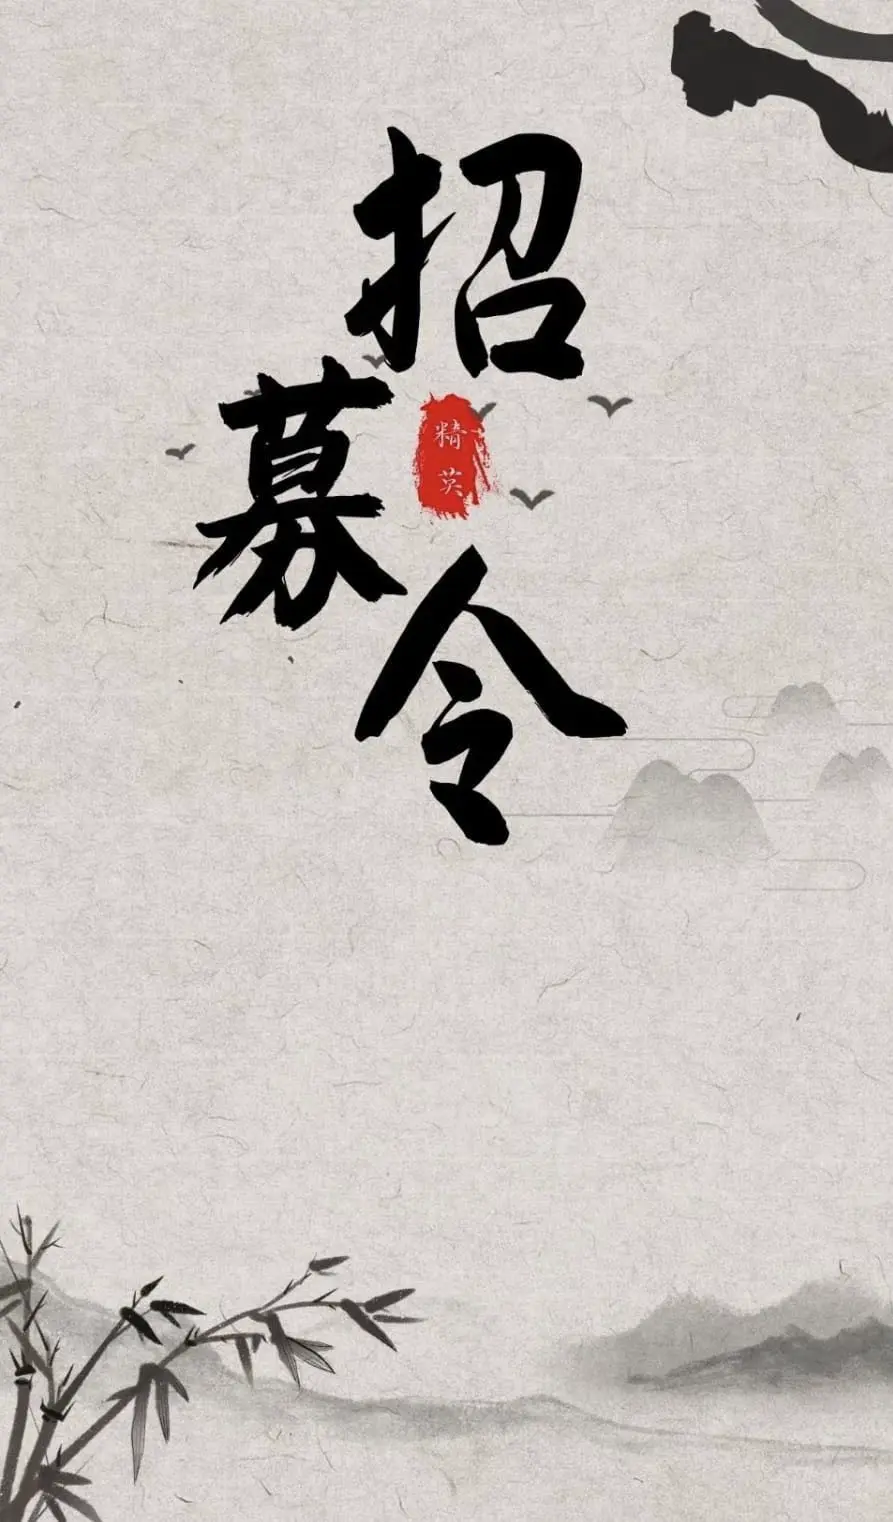 招
募
令
精
英